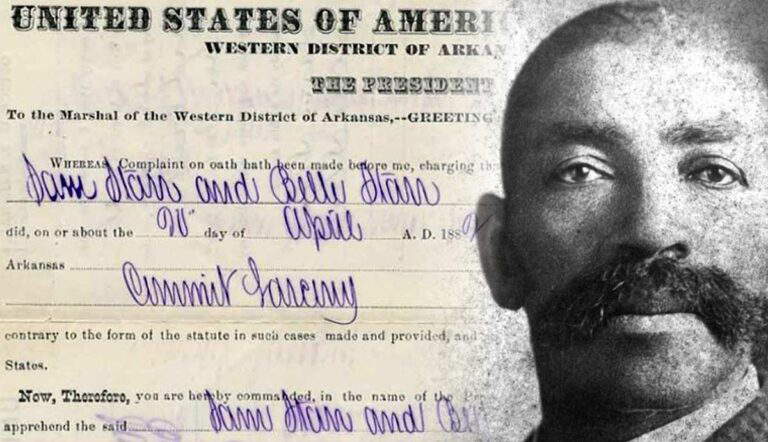 UNITED STATES OF AMERIC
WESTERN DISTRICT OF ARKA
THE PRESIDENT
To the Marshal of the Western District of Arkansas,--GREETING
WHEREAS Complaint on oath hath been made before me, charging th
Sam Starr and Belle Starr
did, on or about the 20 day of April A. D. 188
Arkansas
Commit Larceny
contrary to the form of the statute in such cases made and provided, and
States.
Now, Therefore, you are hereby commanded, in the name of the Pre
apprehend the said Sam Starr and Be